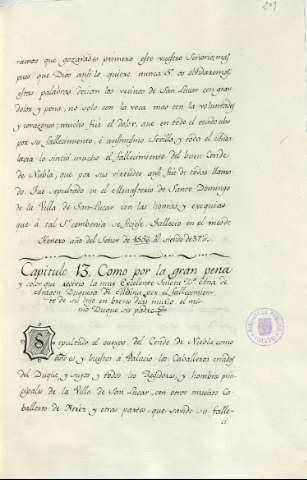 201
ramos que gozarades primero este vuestro Señorio, mas
pues que Dios ansi lo quiere nunca Sr. os olvidaremos
estas palabras decian los vecinos de San Lucar con gran
dolor y pena, no solo con la boca mas con la voluntad
y corazones; mucho fue el dolor, que en todo el estado obo
por su fallecimiento, é asimismo Sevilla, y toda el Anda
lucia lo sintio mucho el fallecimiento del buen Conde
de Niebla, que por sus virtudes ansi fue de todos llama
do. Fue sepultado en el Monasterio de Santo Domingo
de la Villa de San-Lucar con las honras, y exequias
que á tal Sr. combenia se hiziese. Fallecio en el mes de
Henero año del Señor de siendo de
Capitulo 13. Como por la gran pena
y dolor que recivio la muy Exelente Señora Da. Ana de
Aragon Duquesa de Medina por el fallecimien-
to de su hijo en breves dias murio el mis
mo Duque su padre
Sepultado el cuerpo del Conde de Niebla como
aveis y bueltos á Palacio los Caballeros criados
del Duque, y suyos y todos los Regidores, y hombres prin
cipales de la Villa de San Lucar, con otros muchos Ca
balleros de Xerez y otras partes, que savido su falle
ci